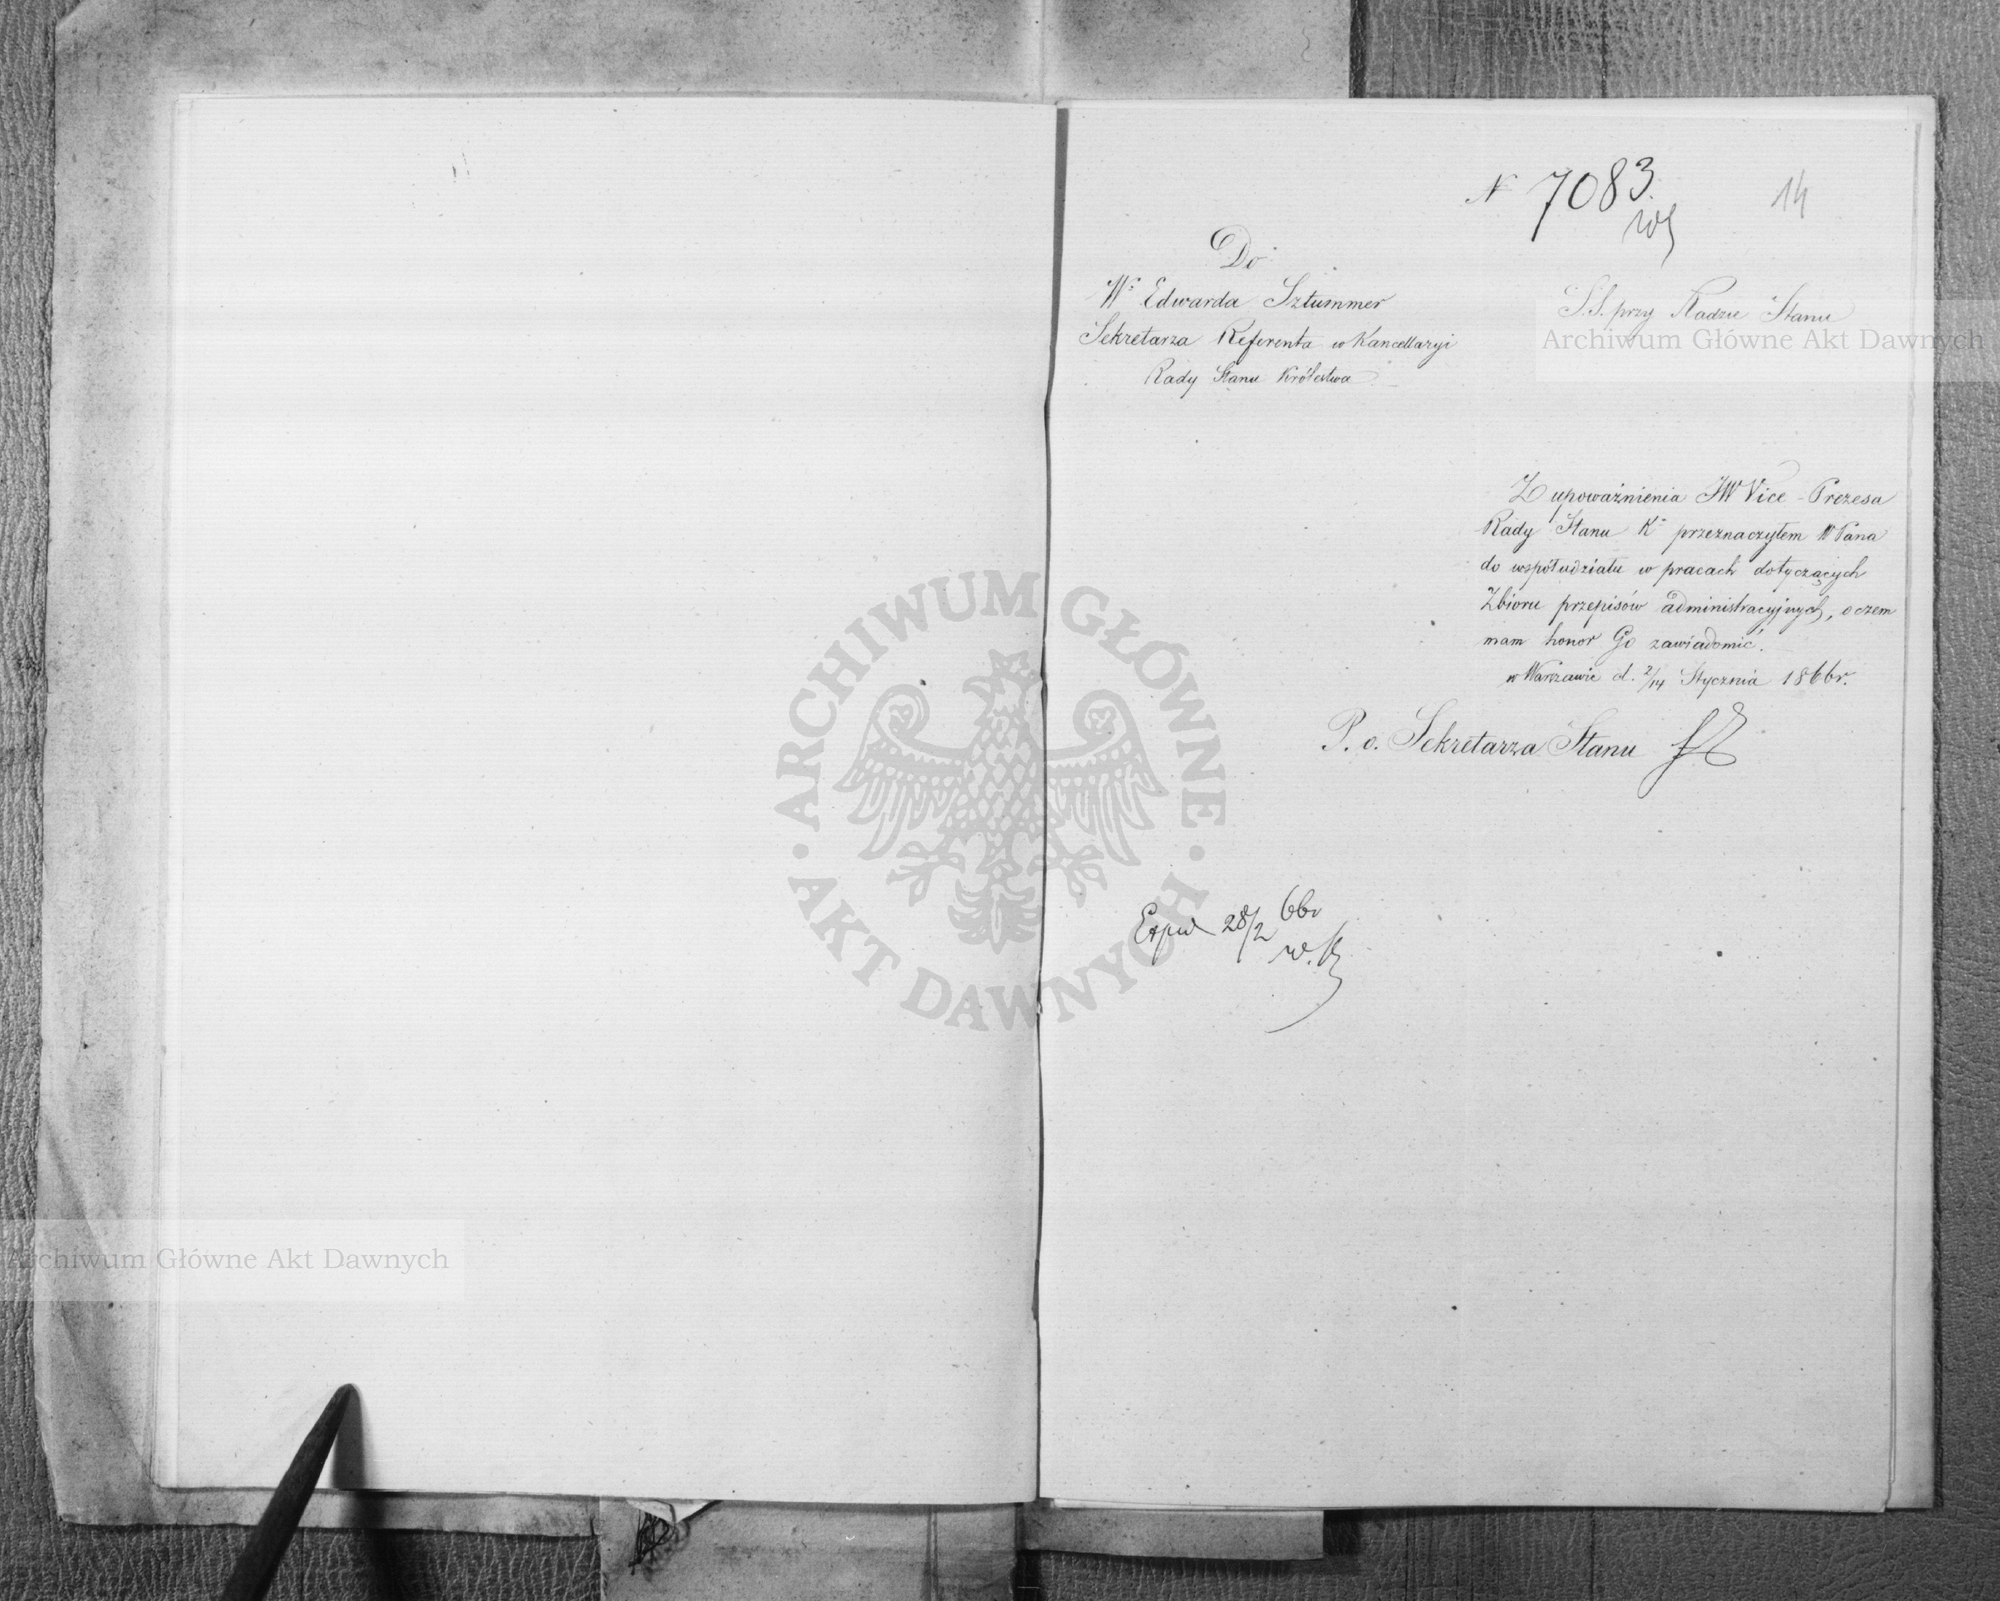 N 7083.
14
Do
W: Edwarda Sztummer
Sekretarza Referenta w Kancellaryi
Rady Stanu Królestwa
S.S. przy Radzie Stanu
Archiwum Główne Akt Dawnych
Z upoważnienia JW Vice-Prezesa
Rady Stanu K: przeznaczyłem WPana
do współudziału w pracach dotyczących
Zbioru przepisów administracyjnych, o czem
mam honor Go zawiadomić.
w Warszawie d. 2/14 Stycznia 1866r.
P. o. Sekretarza Stanu
ARCHIWUM GŁÓWNE
AKT DAWNYCH
28/2 66r
Archiwum Główne Akt Dawnych